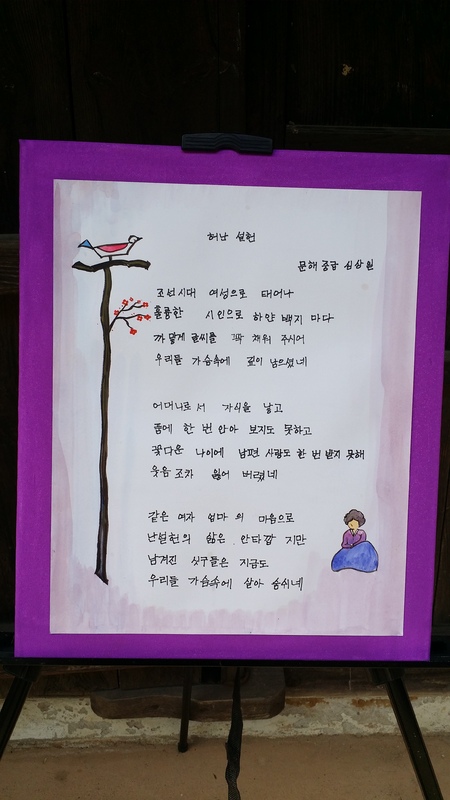 허난 설헌
문해 중급 심상원
조선시대 여성으로 태어나
훌륭한 시인으로 하얀 백지 마다
까맣게 글씨를 꽉 채워 주시어
우리들 가슴속에 깊이 남으셨네
어머니로서 자식을 낳고
품에 한 번 안아 보지도 못하고
꽃다운 나이에 남편 사랑도 한 번 받지 못해
웃음 조차 잃어 버렸네
같은 여자 엄마의 마음으로
난설헌의 삶은 안타깝 지만
남겨진 싯구들은 지금도
우리들 가슴속에 살아 숨쉬네